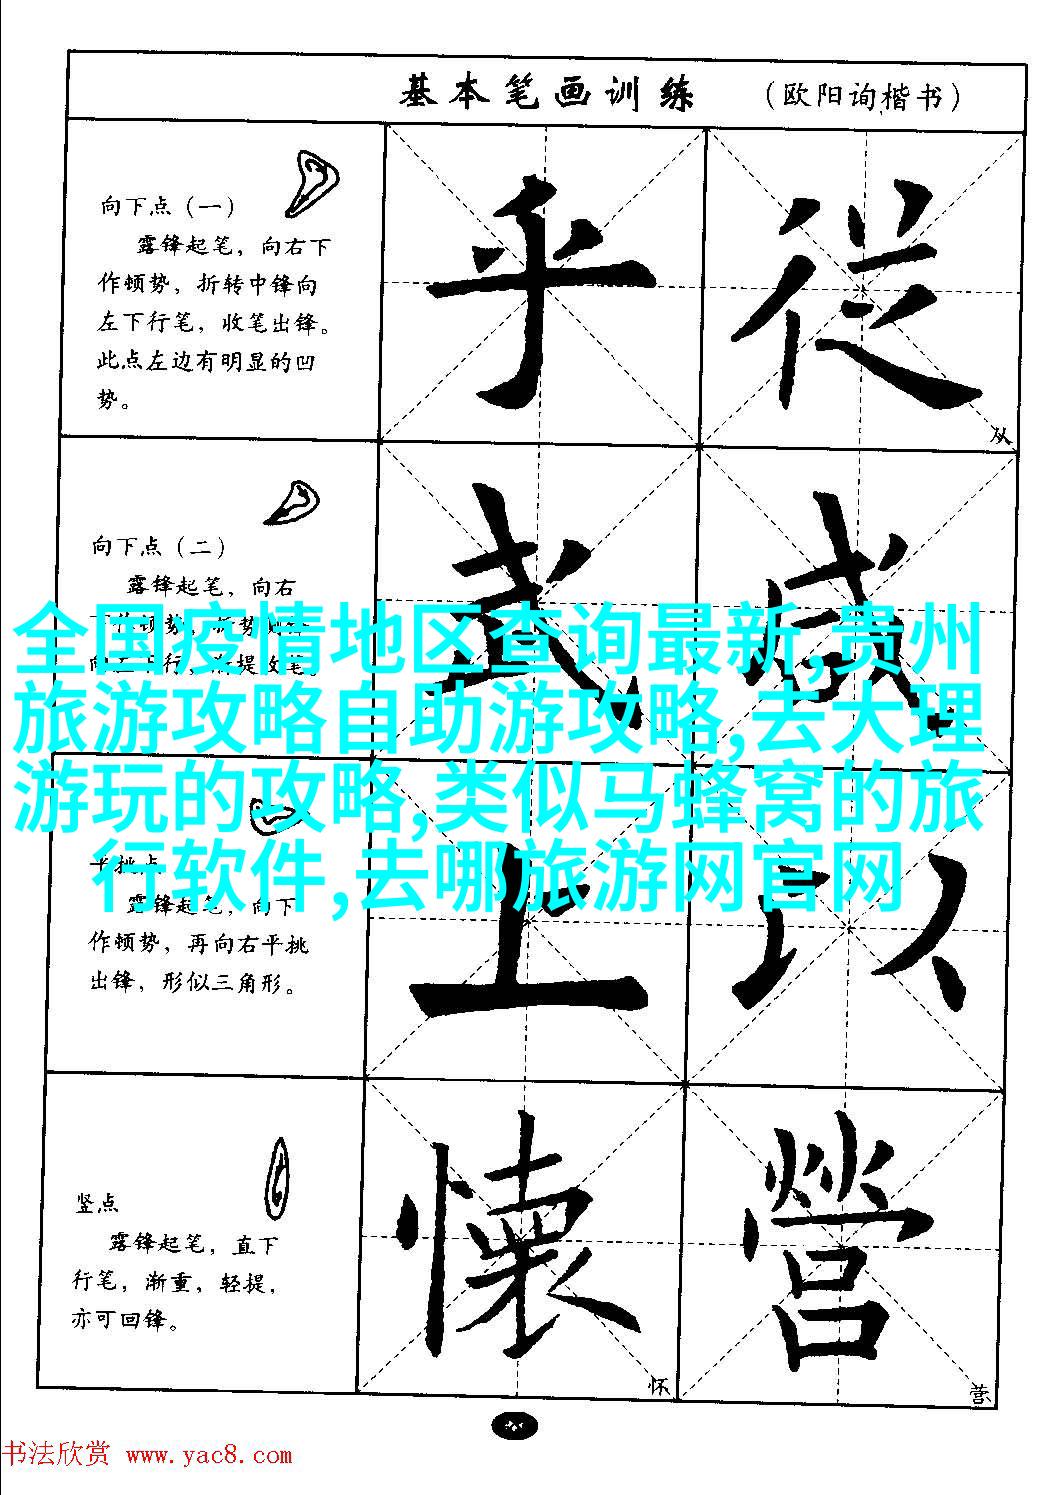 基本笔画训练 （欧阳询楷书）
向下点（一）
露锋起笔，向右下
作顿势，折转中锋向
左下行笔，收笔出锋。
此点左边有明显的凹
势。
乎 從
从
向下点（二）
露锋起笔，向右
武 感
全国疫情地区查询最新,贵州
旅游攻略自助游攻略,去大理
游玩的攻略,类似马蜂窝的旅
行软件,去哪旅游网官网
平挑点
露锋起笔，向下
作顿势，再向右平挑
出锋，形似三角形。
上 以
竖点
露锋起笔，直下
行笔，渐重，轻提，
亦可回锋。
懷 營
怀 营
书法欣赏 www.yac8.com